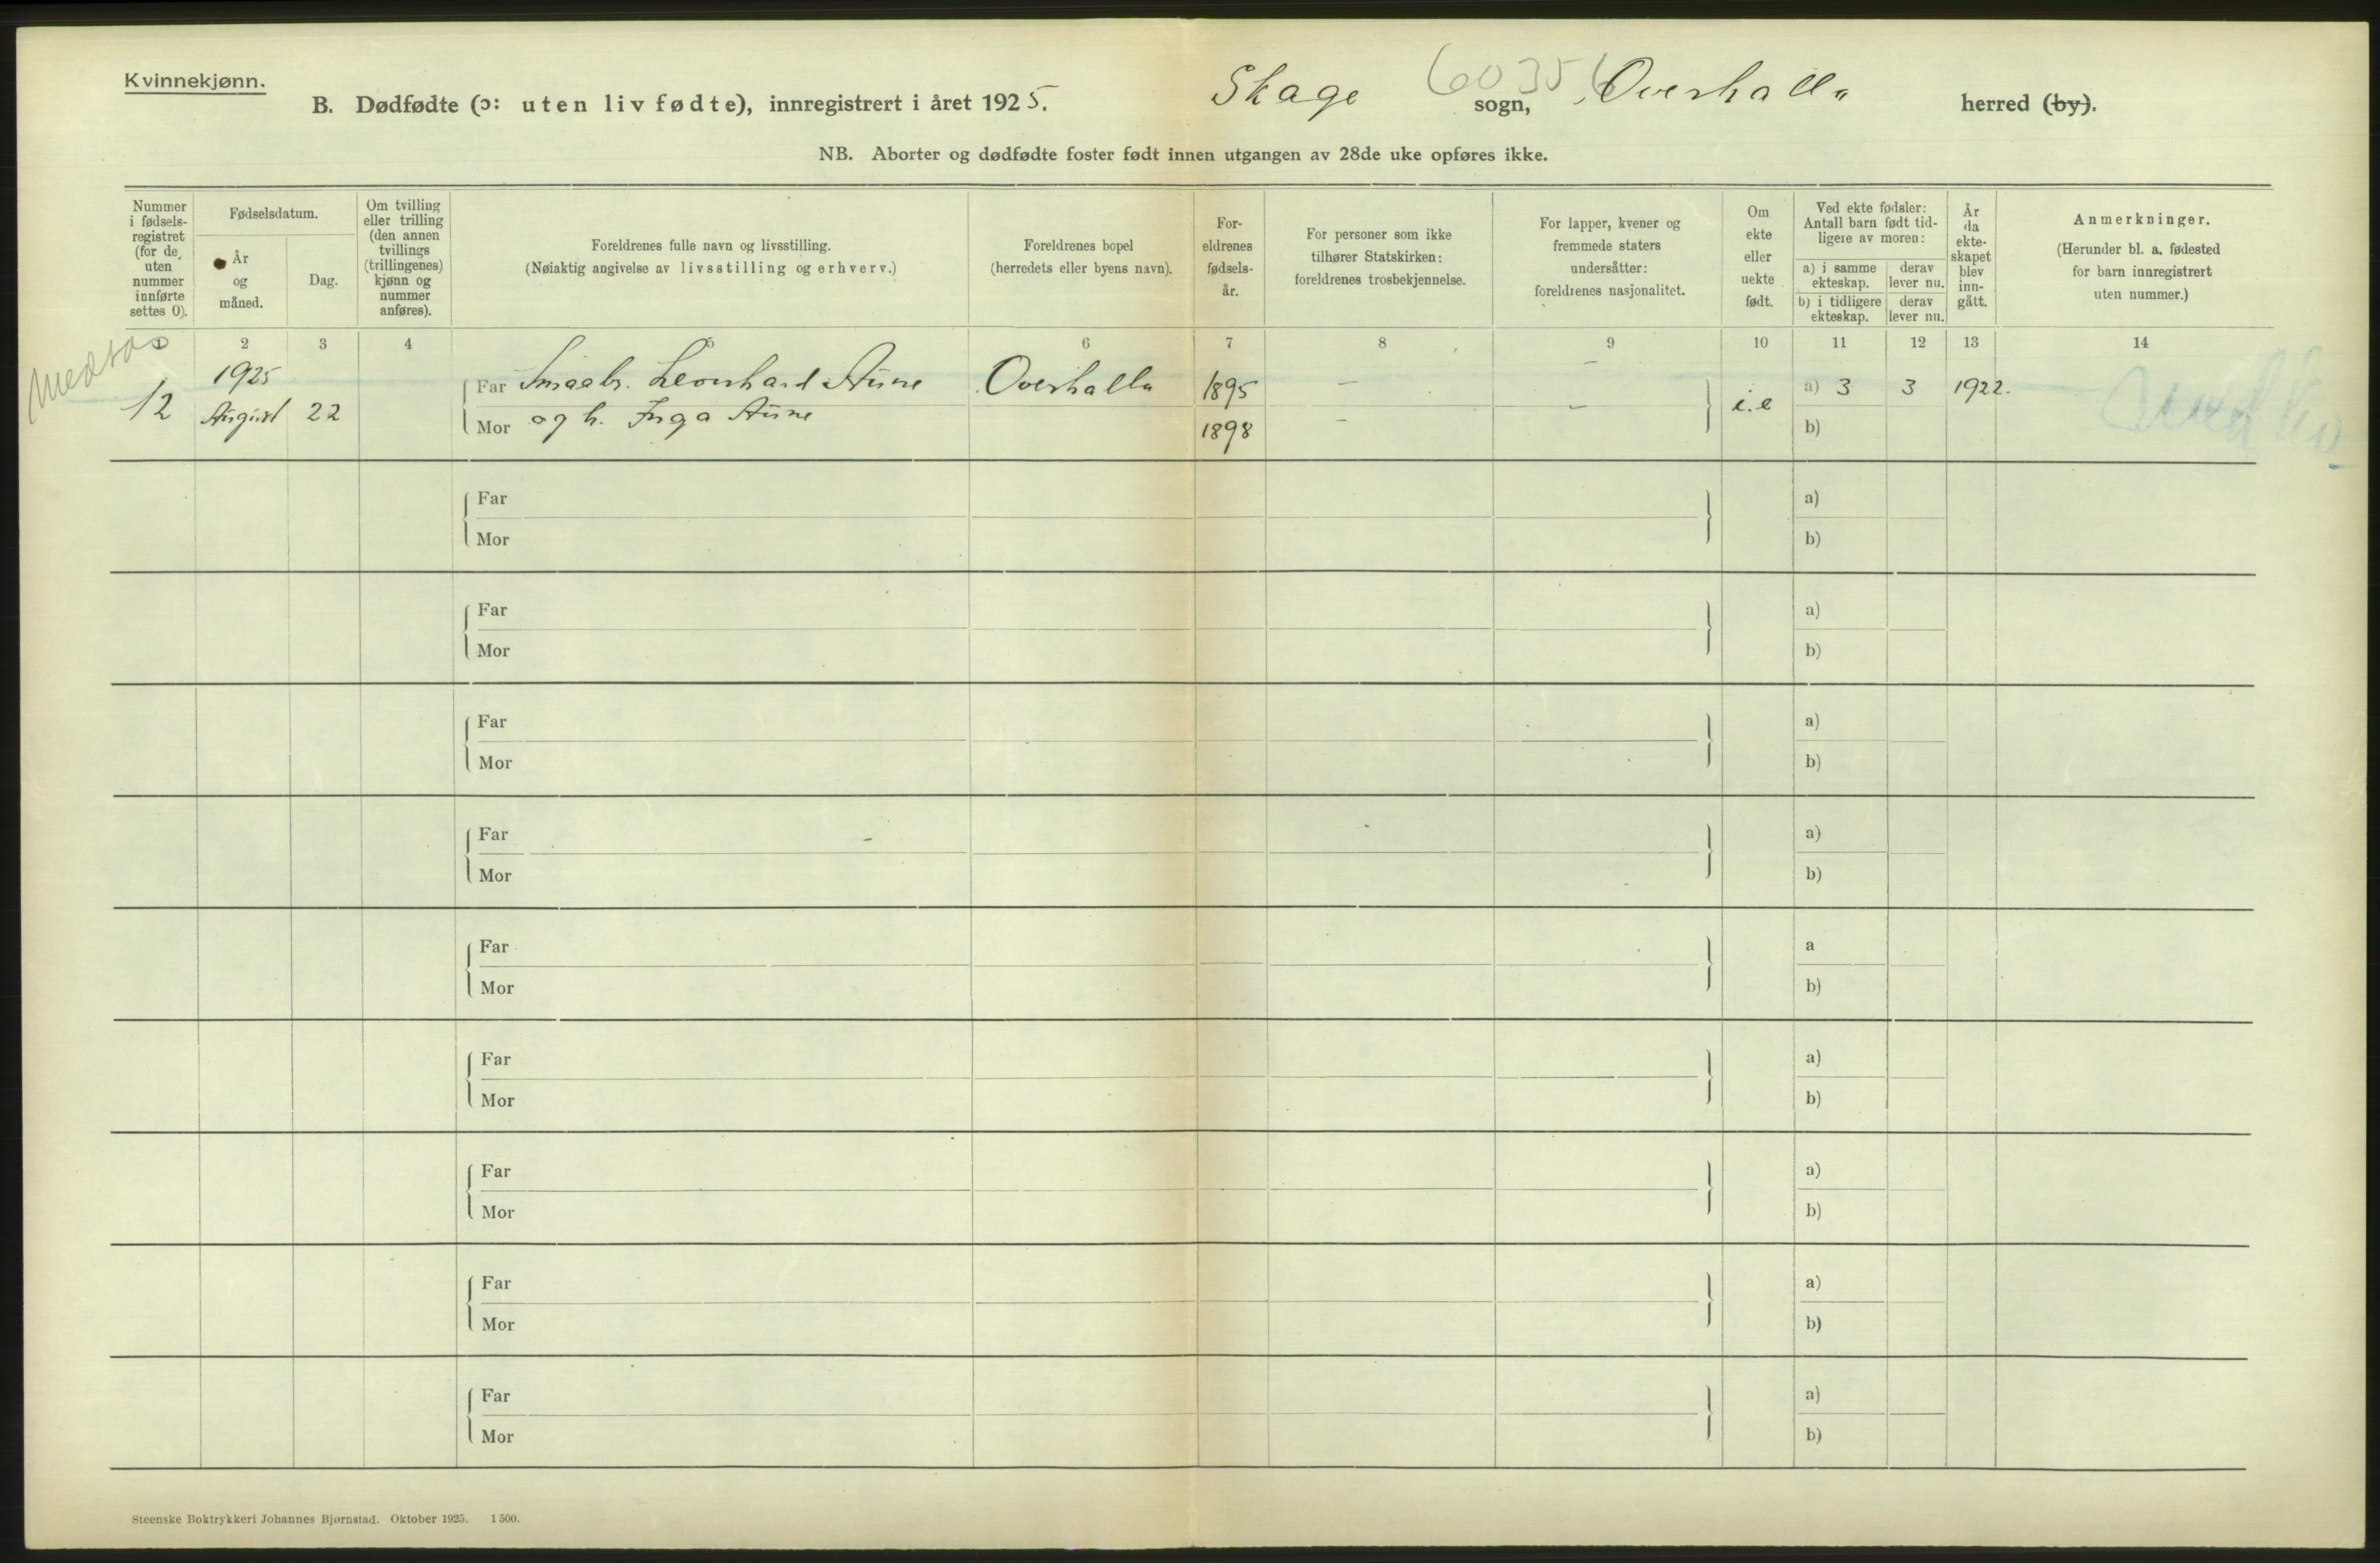 Kvinnekjønn.
B. Dødfødte (ɔ: uten liv fødte), innregistrert i året 1925. Skage sogn, Overhalla herred (by).
6035
NB. Aborter og dødfødte foster født innen utgangen av 28de uke opføres ikke.
Nummer i fødsels-registret (for de uten nummer innførte settes 0).
Fødselsdatum.
År og måned.
Dag.
Om tvilling eller trilling (den annen tvillings (trillingenes) kjønn og nummer anføres).
Foreldrenes fulle navn og livsstilling.
(Nøiaktig angivelse av livsstilling og erhverv.)
Foreldrenes bopel
(herredets eller byens navn).
For-eldrenes fødsels-år.
For personer som ikke tilhører Statskirken: foreldrenes trosbekjennelse.
For lapper, kvener og fremmede staters undersåtter: foreldrenes nasjonalitet.
Om ekte eller uekte født.
Ved ekte fødsler: Antall barn født tid-ligere av moren:
a) i samme ekteskap.
derav lever nu.
b) i tidligere ekteskap.
derav lever nu.
År da ekte-skapet blev inn-gått.
Anmerkninger.
(Herunder bl. a. fødested for barn innregistrert uten nummer.)
2 3 4 6 7 8 9 10 11 12 13 14
12 1925 August 22
Far Smaabr. Leonhard Aune Overhalla 1895 — — i.e a) 3 3 1922.
Mor og h. Inga Aune 1898 — — b)
Far a)
Mor b)
Far a)
Mor b)
Far a)
Mor b)
Far a)
Mor b)
Far a
Mor b)
Far a)
Mor b)
Far a)
Mor b)
Far a)
Mor b)
Far a)
Mor b)
Steenske Boktrykkeri Johannes Bjørnstad. Oktober 1925. 1500.